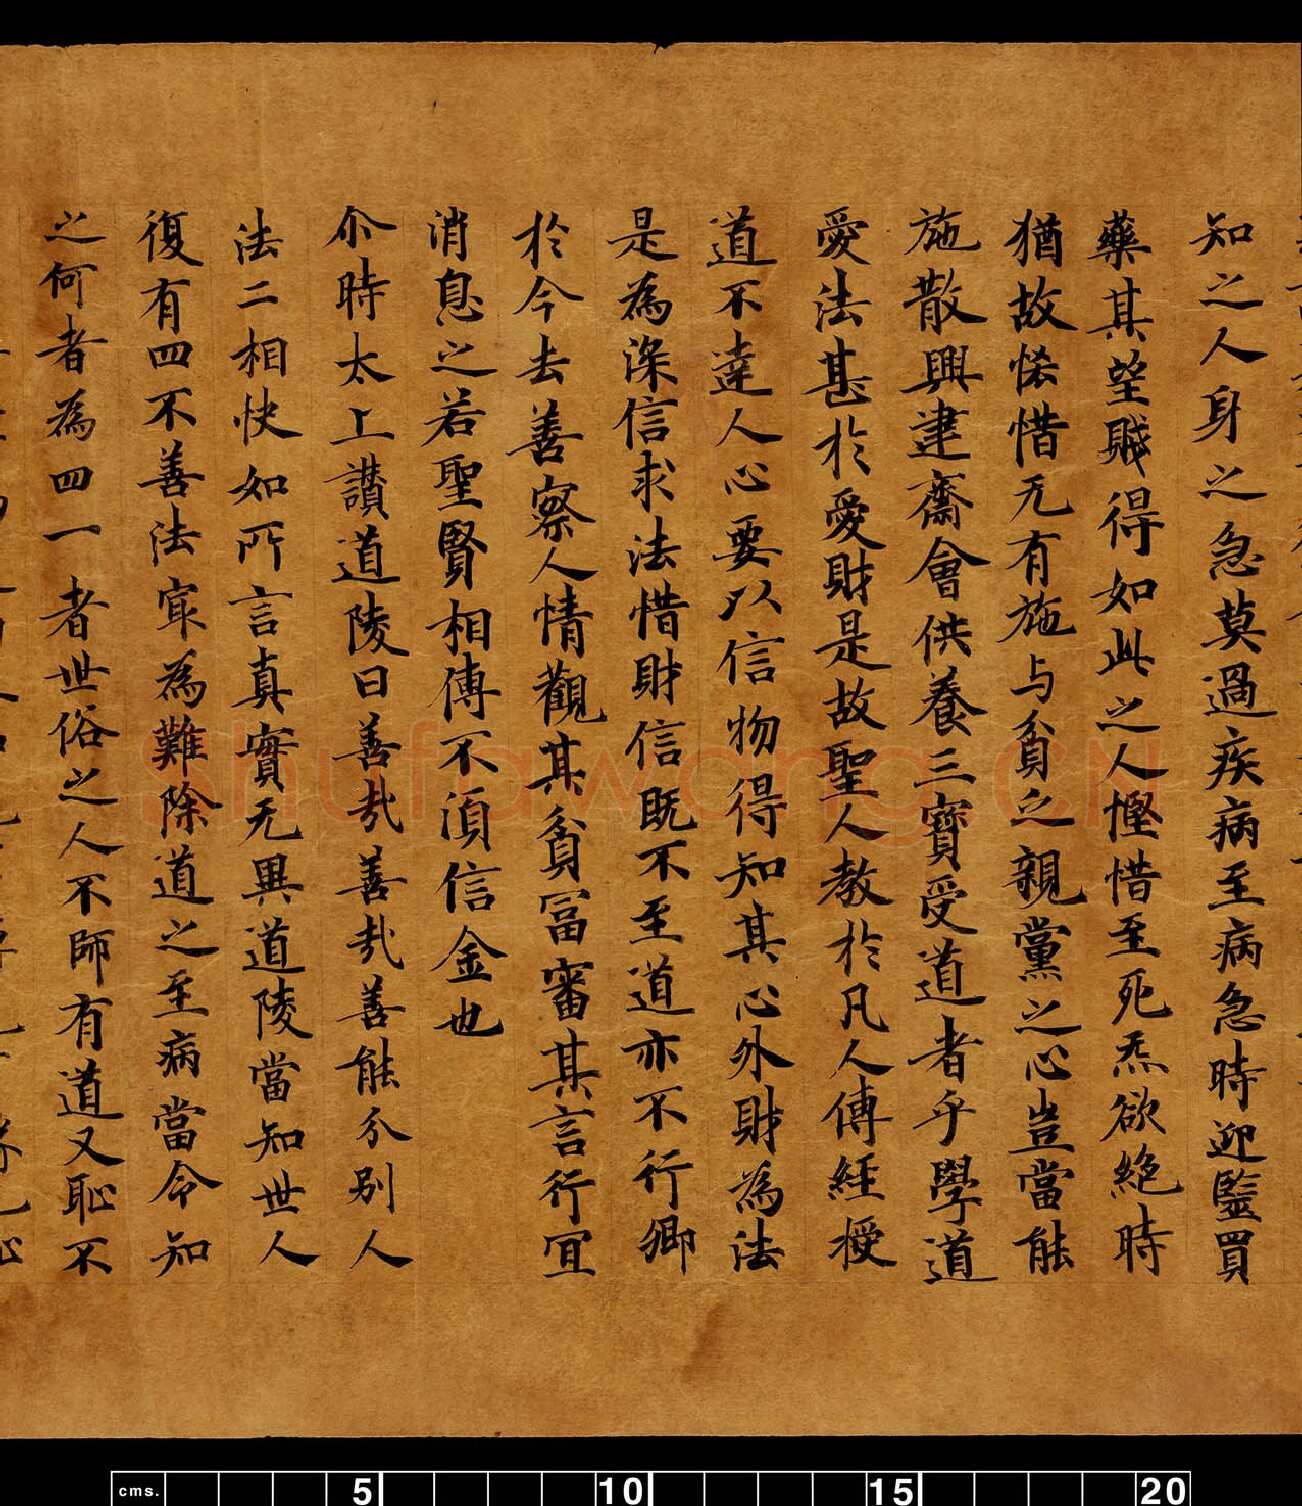 知之人身之急莫過疾病至病急時迎毉買
藥其望賊得如此之人慳惜至死炁欲絶時
猶故悋惜无有施与貧之親黨之心豈當能
施散興建齋會供養三寶受道者乎學道
愛法甚於愛財是故聖人教於凡人傳經授
道不達人心要以信物得知其心外財為法
是為深信求法惜財信既不至道亦不行卿
於今去善察人情觀其貧冨審其言行冝
消息之若聖賢相傳不湏信金也
尒時太上讃道陵曰善哉善哉善能分别人
法二相快如所言真實无異道陵當知世人
復有四不善法冣為難除道之至病當令知
之何者為四一者世俗之人不師有道又恥不
shufawang.CN
cms. 5 10 15 20